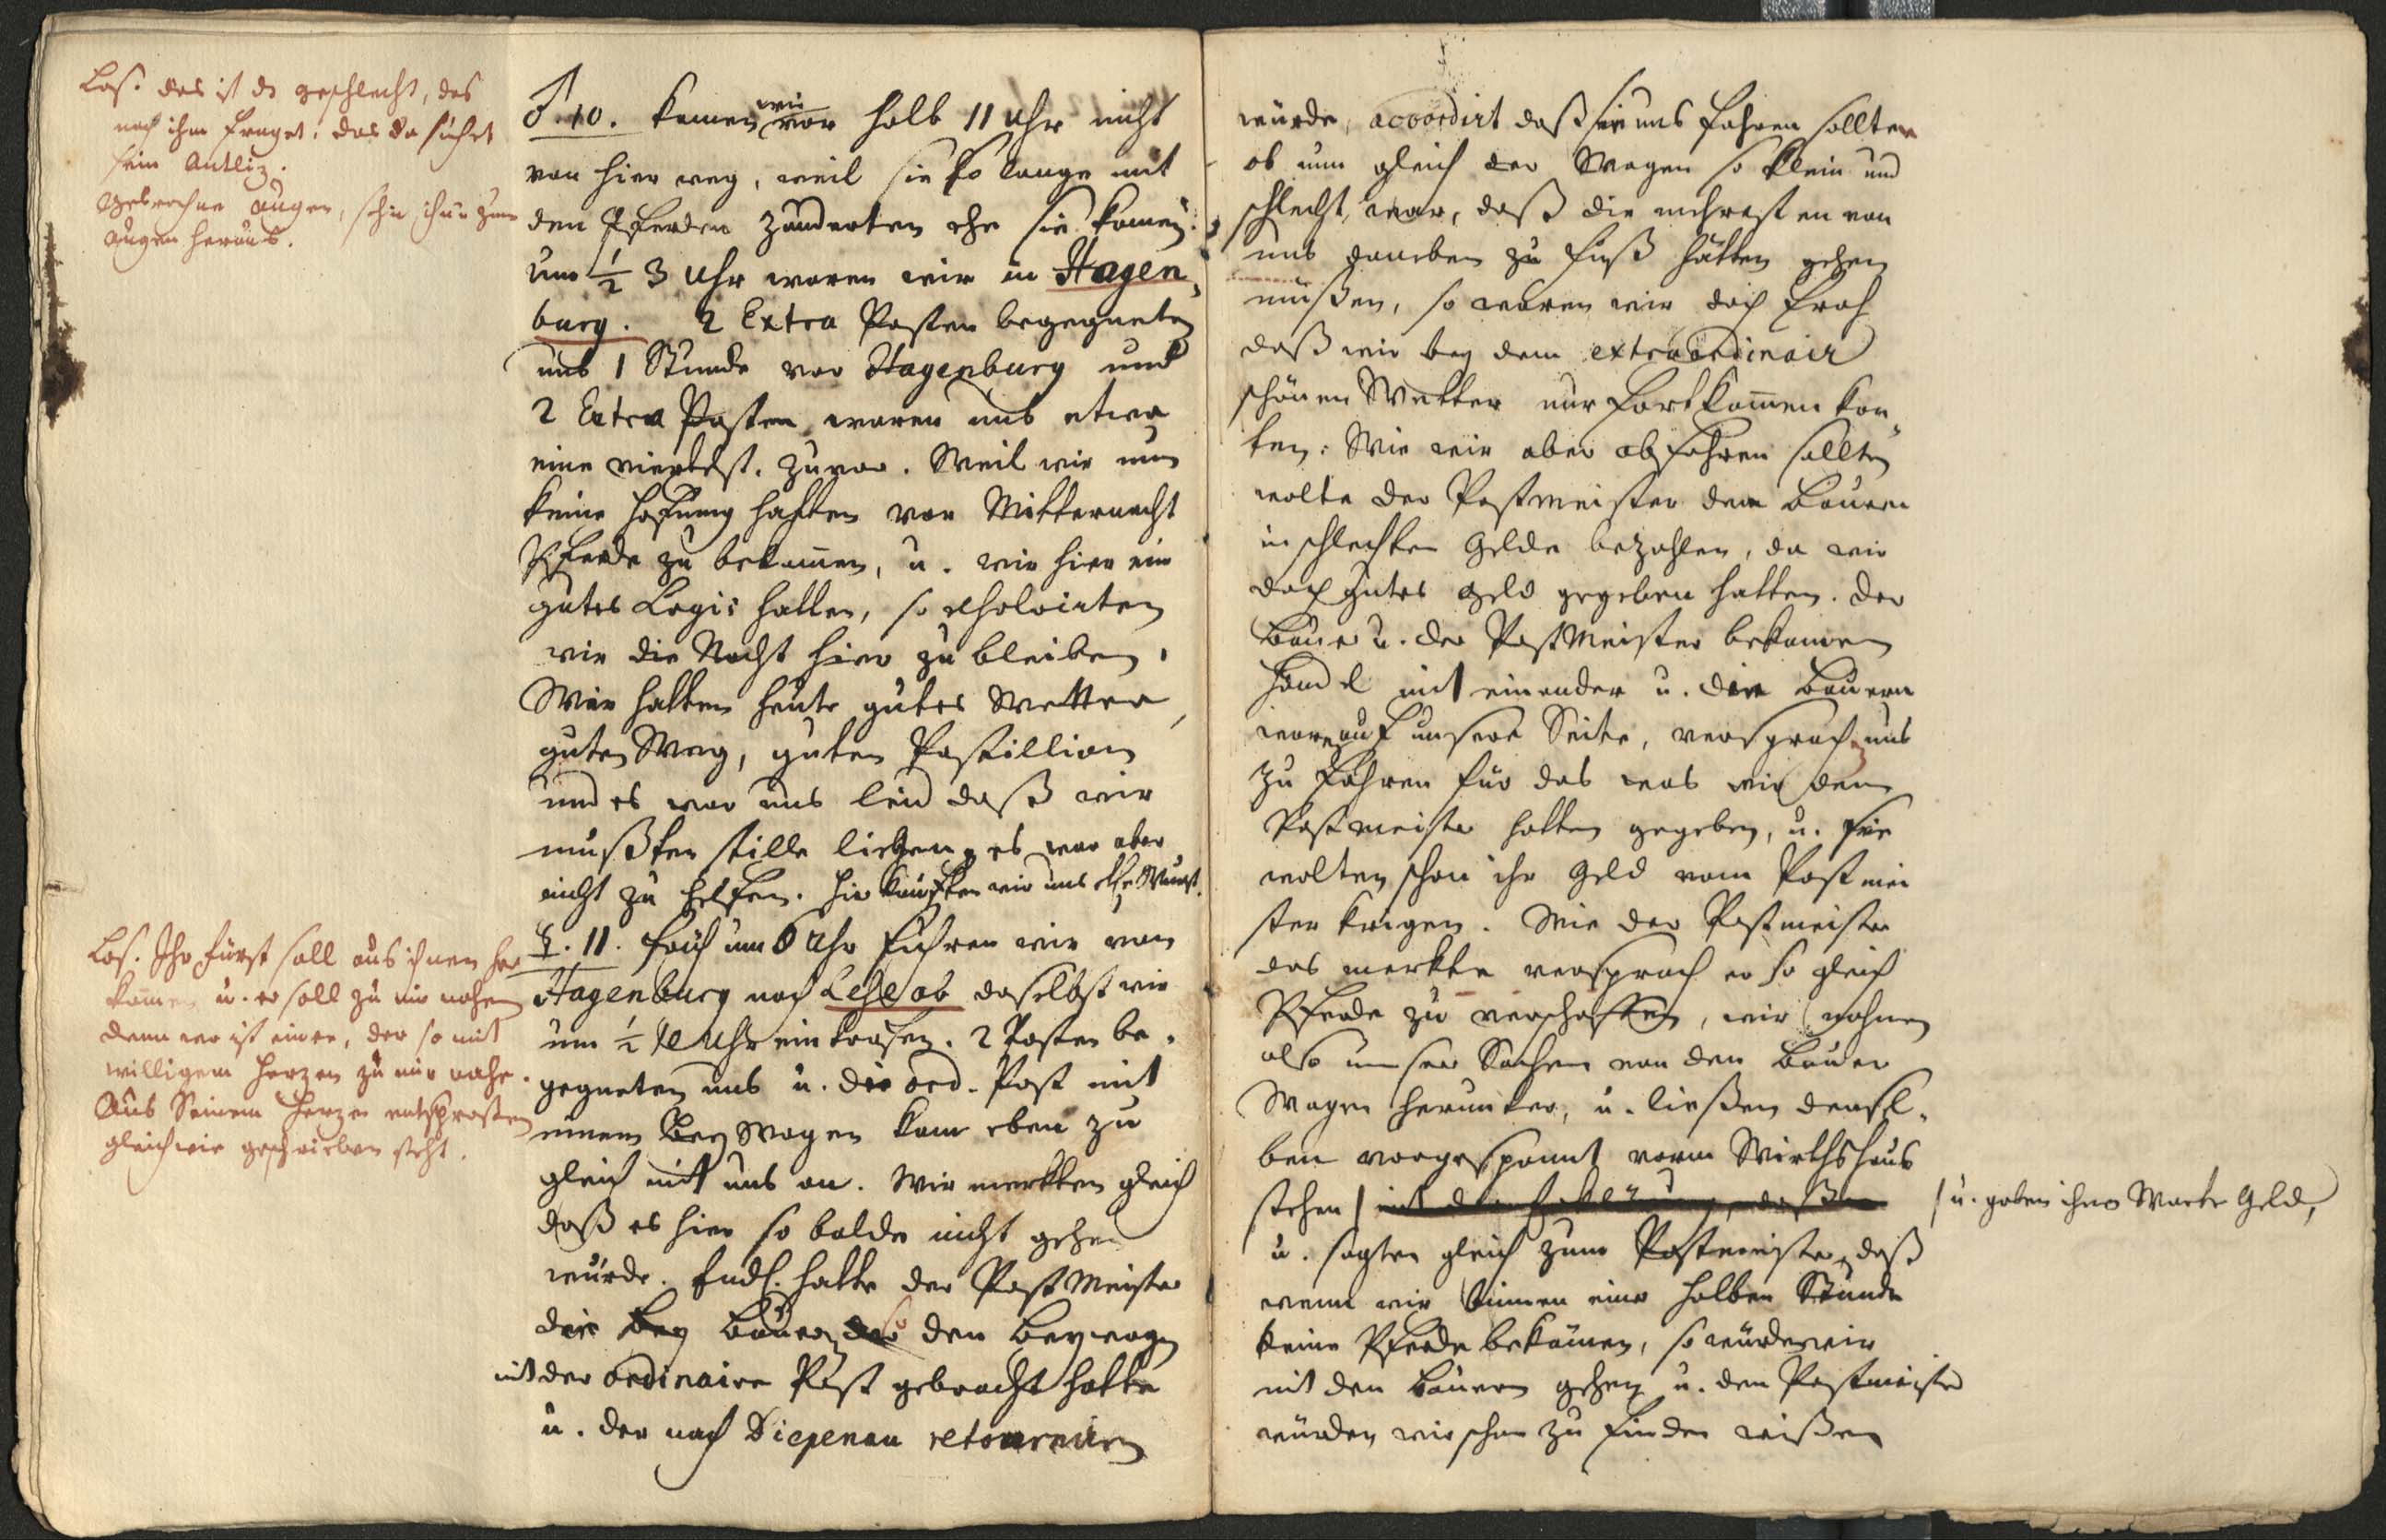 Los. das ist ds geschlecht, das
nach ihm fraget. das da suchet
sein Antliz.
Gebrochne augen, sehn ihm zum
augen heraus.
♂. 10. kamen wir vor halb 11 Uhr nicht
von hier weg, weil sie so lange mit
den Pferden zauderten ehe sie kamen.
um ½ 3 Uhr waren wir in Hagen,
burg. 2 Extra Posten begegneten
uns 1 Stunde vor Hagenburg und
2 Extra Posten waren uns etwa
eine viertelst. zuvor. Weil wir nun
keine hofnung hatten vor Mitternacht
Pferde zu bekommen, u. wir hier ein
gutes Logis hatten, so resolvirten
wir die Nacht hier zu bleiben.
Wir hatten heute gutes Wetter,
guten Weg, guten Postillion
und es war uns leid daß wir
mußten stille liegen, es war aber
nicht zu helfen. hir kauften wir uns Wurst.
Los. Ihr fürst soll aus ihnen her
kommen u. er soll zu mir nahen
denn wer ist einer, der so mit
willigem Herzen zu mir nahe.
Aus Seinem Herzen entsprosten
gleichwie geschrieben steht.
☿. 11. früh um 6 Uhr fuhren wir von
Hagenburg nach Lehse ab daselbst wir
um ½ 10 Uhr eintrafen. 2 Posten be,
gegneten uns u. die ord. Post mit
einem Bey Wagen kam eben zu
gleich mit uns an. Wir merkten gleich
daß es hier so balde nicht gehen
würde. Endl. hatte der Post Meister
die Bauern so den Beywagen
mit der ordinaire Post gebracht hatte
u. der nach Diepenau retourniren
würde, accordirt daß sie uns fahren sollten
ob nun gleich der Wagen so klein und
schlecht war, daß die mehresten von
uns daneben zu fuß hätten gehen
müßen, so waren wir doch froh
daß wir bey dem extraordinair
schönen Wetter nur fortkommen kon,
ten: Wie wir aber abfahren sollten
wolte der Postmeister dem Bauern
in schlechten Gelde bezahlen, da wir
doch gutes Geld gegeben hatten. Der
Bauer u. der PostMeister bekamen
Händel mit einander u. die Bauern
waren auf unsere Seite, versprachen uns
zu fahren für das was wir dem
Postmeister hatten gegeben, u. sie
wolten schon ihr Geld vom Postmei
ster krigen. Wie der Postmeister
das merkte versprach er so gleich
Pferde zu verschaffen, wir nahmen
also unser Sachen von den Bauer
Wagen herunter, u. ließen densel,
ben vorgespannt vorm Wirthshaus
stehen / u. gaben ihm Warte Geld,
u. sagten gleich zum Postmeister, daß
wenn wir binnen einer halben Stunde
keine Pferde bekämen, so würden wir
mit den Bauern gehen u. den Postmeister
würden wir schon zu finden wißen